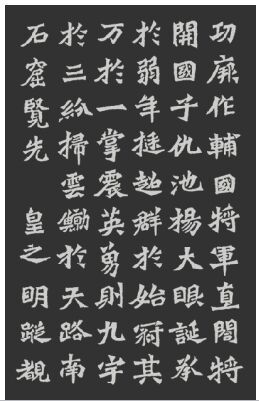 功厥作輔國將軍直閤將
開國子仇池揚大眼誕承
於弱年挺超群於始冠其
万於一掌震英勇則九宇
於三紛掃雲鯨於天路南
石窟覽先　皇之明蹤覩